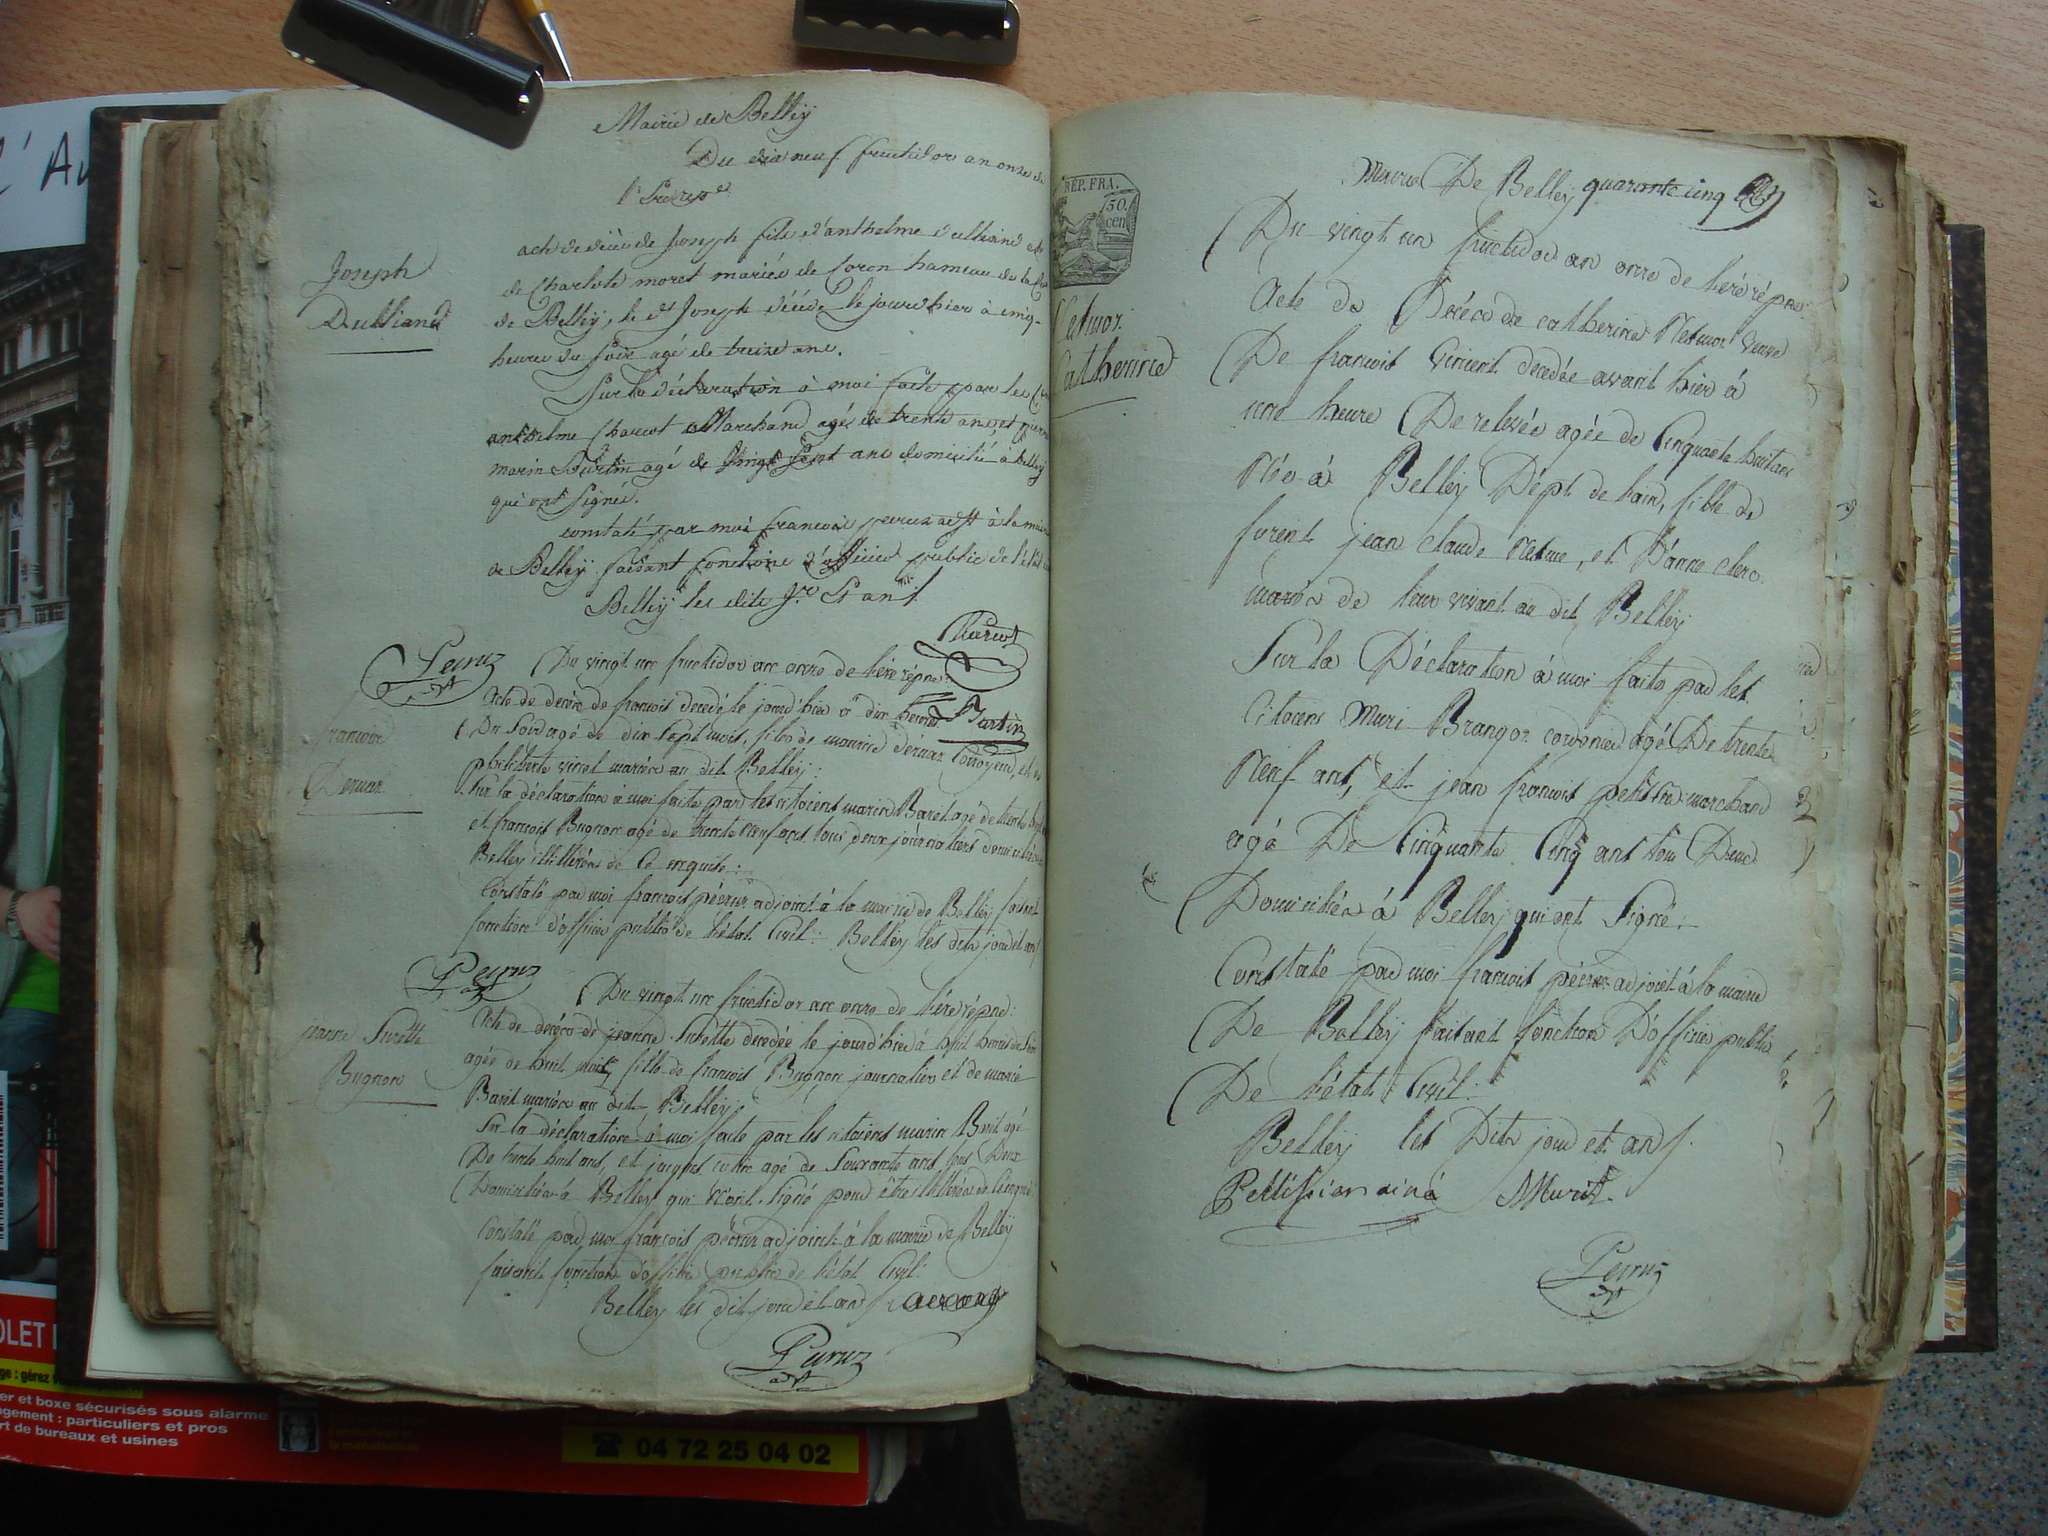 Mairie de Belley
Du dix neuf fructidor an onze de
l'
Joseph
Dulliand
acte de décès de Joseph fils d'anthelme dulliand et
de Charlote moret mariés de Coron hameau de la
de Belley, le dt Joseph décédé le jourd'hier à cinq
heures du soir agé de treize ans.
Sur la déclaration à moi faite par les
anthelme Chavot Marchand agé de trente ans et
marin Martin agé de vingt sept ans domiciliés à belley
qui ont signés.
constaté par moi francois peyruz adjt à la mairie
de Belley faisant fonctions d'officier public de l'état
Belley les dits jrs et ans
Peiruz
adjt
Chavot
Martin
francois
Dernaz
Du vingt un fructidor an onze de l'ère répne
Acte de décès de francois decédé le jourd'hier à dix heures
Du Soir agé de dix sept mois, fils de maurice dernaz Corroyeur, et de
philiberte vinet mariés au dit Belley:
Sur la déclaration à moi faite par les citoiens marin Baret agé de trente huit
et francois Bugnon agé de trente neuf ans tous deux journaliers domiciliés
Belley illittérés de Ce enquis:
Constaté par moi francois péiruz adjoint à la mairie de Belley faisant
fonctions d'officier public de l'état Civil: Belley les dits jour et an
Peiruz
adjt
jeanne Surette
Bugnon
Du vingt un fructidor an onze de l'ère répne:
Acte de décès de jeanne Surette decédée le jourd'hier à huit heures du soir
agée de huit mois, fille de francois Bugnon journalier et de marie
Baret mariés au dit Belley
Sur la déclaration à moi faite par les citoiens marin Baret agé
De trente huit ans, et jacques agé de Soixante ans tous Deux
Domiciliés à Belley qui n'ont signé pour être illitérés de Ce enquis
Constaté par moi francois péiruz adjoint à la mairie de Belley
faisant fonctions d'officier public de l'état Civil.
Belley les dit jour et an
Peiruz
adjt
RÉP. FRA.
50.
cen
Mairie De Belley quarante cinq
Netmoz
Catherine
Du vingt un fructidor an onze de l'ère répne
Acte de Décès de catherine Netmoz veuve
De francois vincent decedée avant hier à
une heure De relevée agée de Cinquante huit ans
Née à Belley Dépt de l'ain, fille de
furent jean claude Netmoz, et D'anne clerc
mariés de leur vivant au dit Belley
Sur la Déclaration à moi faite par les
Citoiens Muri Brangoz cordonier agé De trente
Neuf ans, et jean francois marchand
agé De Cinquante Cinq ans tous Deux
Domiciliés à Belley qui ont Signé:
Constaté par moi francois péiruz adjoint à la mairie
De Belley faisant fonctions D'officier public
De l'état Civil:
Belley les Dits jour et an
ainé Muris
Peiruz
adjt
L'Au
OLET
ge : gérez
er et boxe sécurisés sous alarme
gement : particuliers et pros
rt de bureaux et usines
☎ 04 72 25 04 02